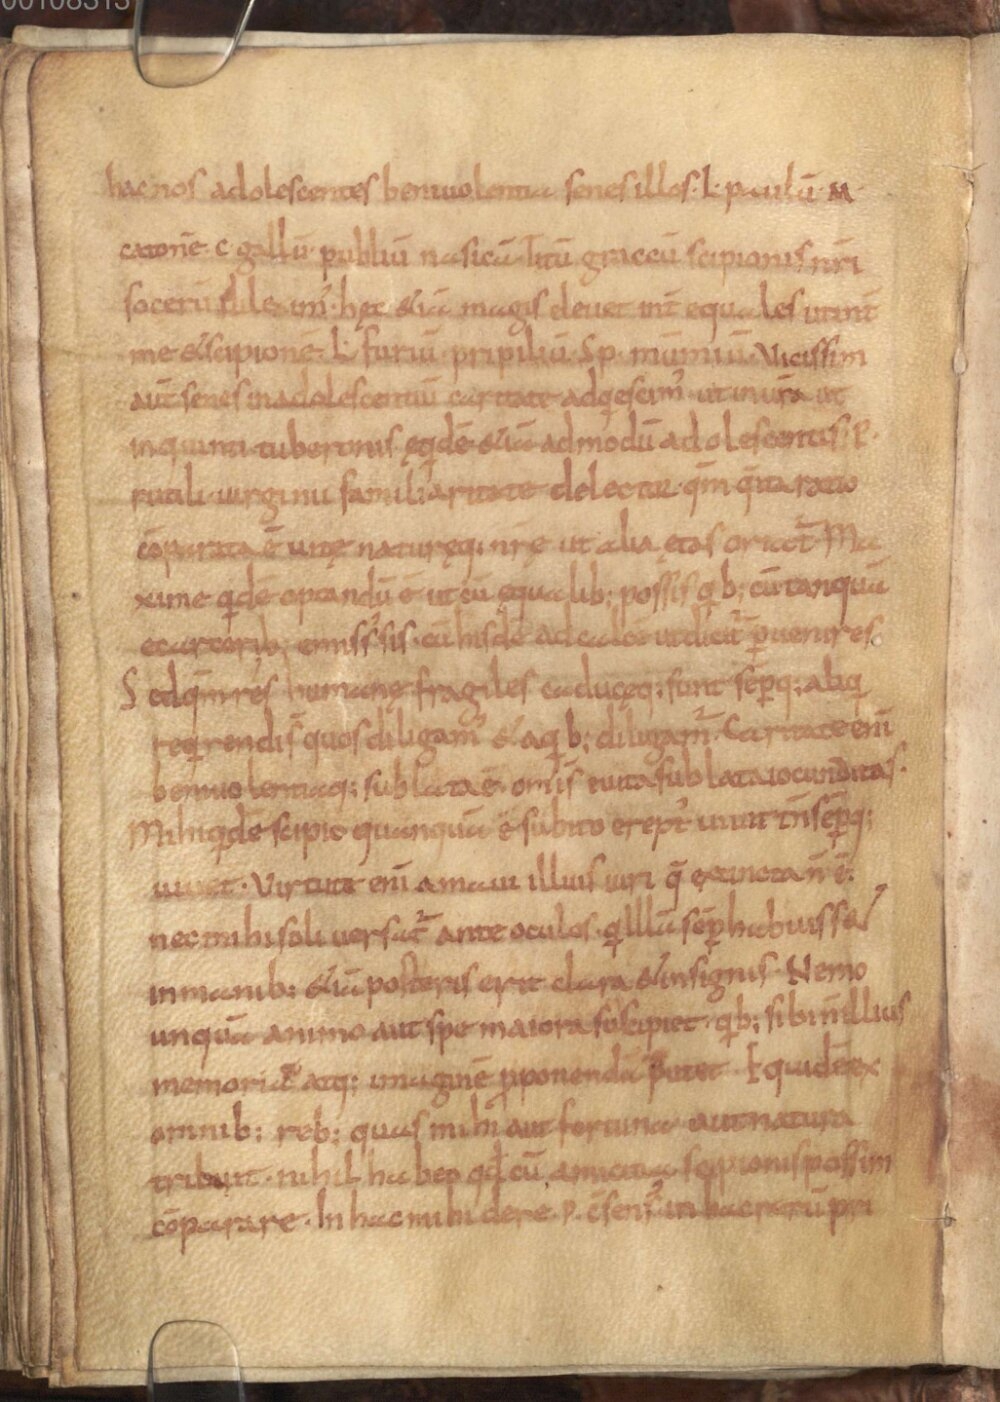 00108313
hac nos adolescentes benivolentia senes illos · L · paulū · M ·
catonē · c · gallū · publiū nasicā · Titū graccū scipionis nr̄i
socerū hęc &iā magis elucet int̄ equales ut int̄
me & scipionē · L · furiū · pripiliū · Sp · mūmiū · Vicissim
aut̄ senes in adolescentiū caritate adqescim᾽ · ut in vr̄a ut
in quinti tuberonis · ęqdē &iā admodū adolescentis · P ·
rutili · virginii familiaritate delector · qm̄ ita ratio
cōparata ē vitę naturęq; nr̄ę ut alia ętas oriat᷑ · Ma
xime qdē optandū ē ut cū ęqualib; possis qb; cū tanquā
e carcerib; emiss᾽ sis · cū hisdē ad calcē ut dicit᷑ ꝑvenire ·
Sed qm̄ res humanę fragiles caducęq; sunt sēꝑq; aliq
reqrendi s̄ quos diligam᾽ & a qb; diligam᷑ · Caritate enī
benivolentiaq; sublata ē · om̄is vita sublata iocunditas ·
Mihi qdē scipio quanquā ē subito erept᾽ vivit tn̄ sēꝑq;
vivet · Virtutē enī amavi illius viri q̄ extincta n̄ ē ·
nec mihi soli versat᷑ ante oculos · q illā sēꝑ habui
in manib; &iā posteris erit clara & insignis · Nemo
unquā animo aut spe maiora suscipiet · qb; sibi n̄ illius
memoriā atq; imaginē ꝓponendā putet · Equidē ex
omnib; reb; quas mihi aut fortuna aut natura
tribuit · nihil habeo qđ cū amicitia scipionis possim
cōparare · In hac mihi de re · p · c̄sens᾽ in hac rerū pri